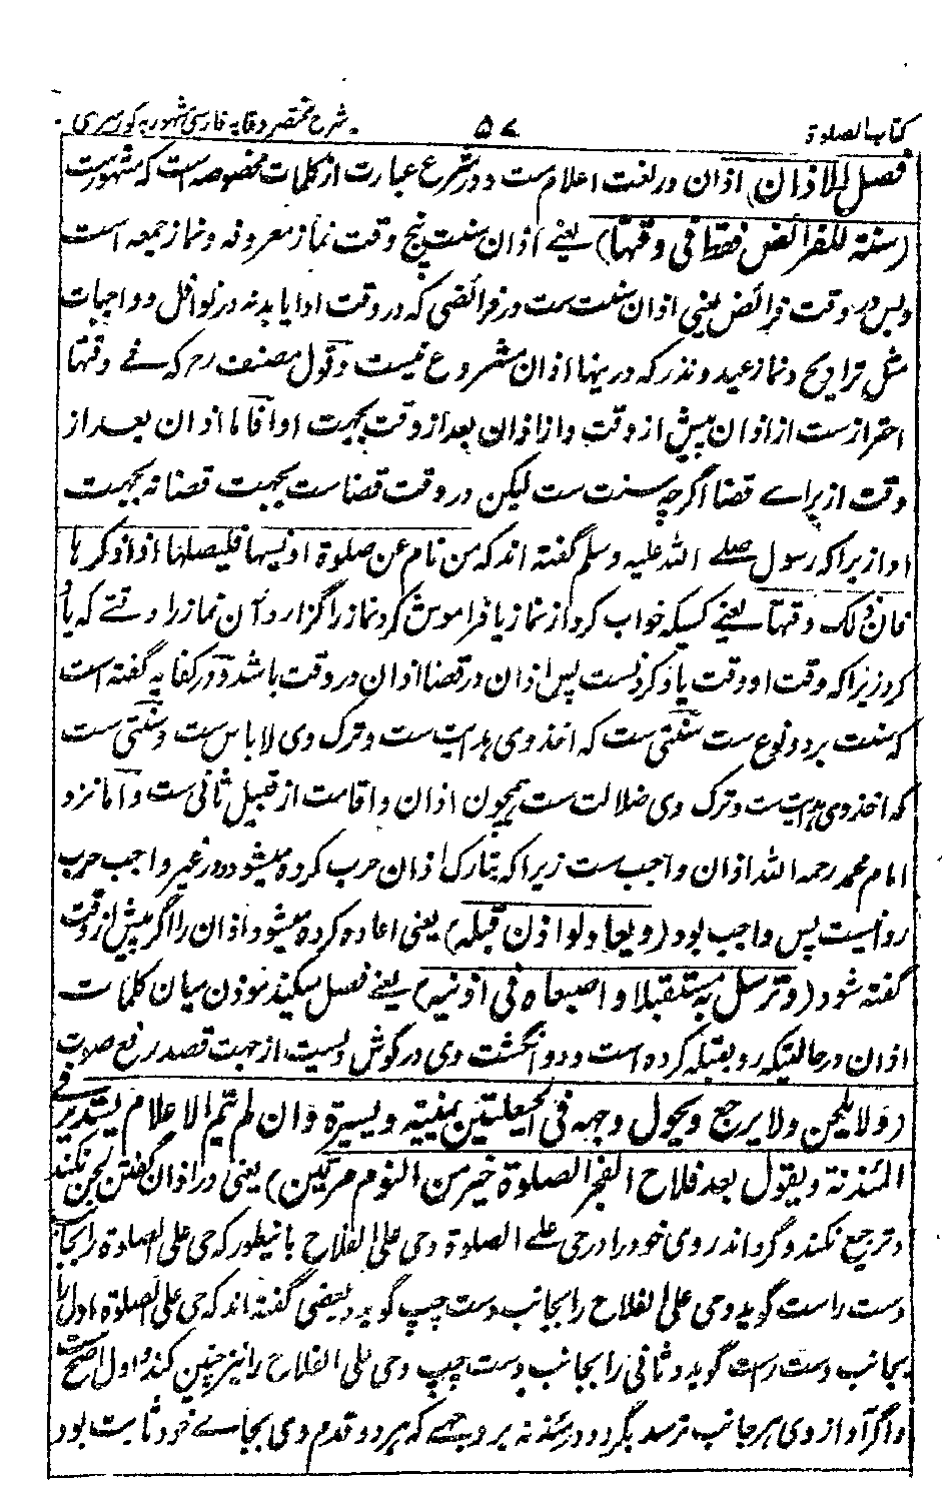 کتاب الصلوة ۵۷ شرح مختصر وقایه فارسی مشهور به کور میری
فصل الاذان) اذان در لغت اعلام ست و در شرع عبارت از کلمات مخصوصه است که مشهورست
(سنة للفرائض فقط فی وقتها) یعنے اذان سنت پنج وقت نماز معروفه و نماز جمعه است
و بس در وقت فرائض یعنی اذان سنت ست در فرائضی که در وقت ادا یابد نه در نوافل و واجبات
مثل تراویح و نماز عید و نذر که درینها اذان مشروع نیست و قول مصنف رح که فے وقتها
احتراز ست از اذان پیش از وقت و از اذان بعد از وقت بجهت ادا فاما اذان بعد از
وقت از براے قضا اگرچه سنت ست لیکن در وقت قضا ست بجهت قضا نه بجهت
ادا زیراکه رسول صلے الله علیه وسلم گفته اند که من نام عن صلوة او نسیها فلیصلها اذا ذکرها
فان ذلک وقتها یعنے کسیکه خواب کرد از نماز یا فراموش کرد نماز را گزارد آن نماز را وقتے که یاد
کرد زیراکه وقت او وقت یاد کردنست پس اذان در قضا اذان در وقت باشد و در کفایه گفته است
که سنت بر دو نوع ست سنتی ست که اخذ وی هدایت ست و ترک وی لا باس ست و سنتی ست
که اخذ وی هدایت ست و ترک وی ضلالت ست همچون اذان و اقامت از قبیل ثانی ست و اما نزد
امام محمد رحمه الله اذان واجب ست زیراکه بتارک اذان حرب کرده میشود و در غیر واجب حرب
روا نیست پس واجب بود (ویعاد لو اذن قبله) یعنی اعاده کرده میشود اذان را اگر پیش از وقت
گفته شود (و ترسل به مستقبلا و اصبعاه فی اذنیه) یعنے فصل میکند موذن میان کلمات
اذان در حالتیکه رو بقبله کرده است و دو انگشت وی در گوش ویست از جهت قصد رفع صوت
(ولا یلحن ولا یرجع و یحول وجهه فی الحیعلتین یمنیة و یسیرة و ان لم یتم الاعلام یستدیر فے
المئذنة و یقول بعد فلاح الفجر الصلوة خیر من النوم مرتین) یعنی در اذان گفتن لحن نکند
و ترجیع نکند و گرداند روی خود را در حی علے الصلوة و حی علی الفلاح باینطور که حی علی الصلوة را بجانب
دست راست گوید و حی علی الفلاح را بجانب دست چپ گوید و بعضی گفته اند که حی علی الصلوة اول را
بجانب دست راست گوید و ثانی را بجانب دست چپ و حی علی الفلاح را نیز چنین کند و اول اصح ست
و اگر آواز وی هر جانب نرسد بگردد در مئذنه بر وجهے که هر دو قدم وی بجاے خود ثابت بود